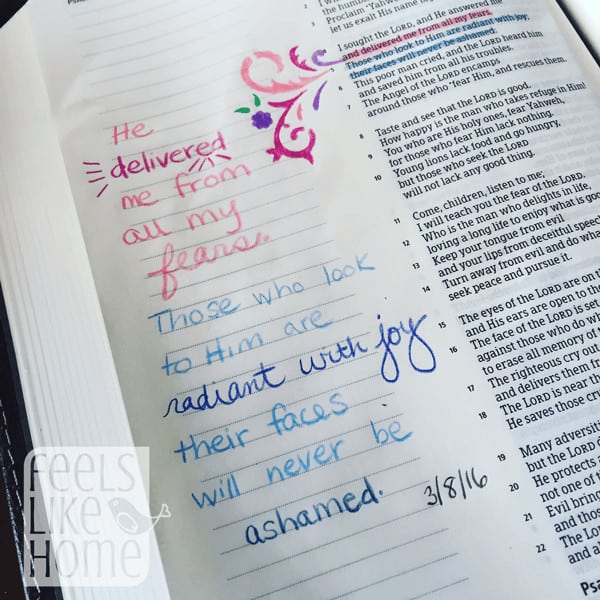 He
delivered
me from
all my
fears.
Those who look
to Him are
radiant with joy
their faces
will never be
ashamed.
3/8/16
FEELS
LIKE
HOME
2
3
let us exalt His name
4
I sought the LORD, and He answered me
and delivered me from all my fears.
5
Those who look to Him are radiant with joy;
their faces will never be ashamed.
6
This poor man cried, and the LORD heard him
and saved him from all his troubles.
7
The Angel of the LORD encamps
around those who fear Him, and rescues them.
8
Taste and see that the LORD is good.
How happy is the man who takes refuge in Him!
9
You who are His holy ones, fear Yahweh,
for those who fear Him lack nothing.
10
Young lions lack food and go hungry,
but those who seek the LORD
will not lack any good thing.
11
Come, children, listen to me;
I will teach you the fear of the LORD.
12
Who is the man who delights in life,
loving a long life to enjoy what is
13
Keep your tongue from evil
and your lips from deceitful
14
Turn away from evil and do
seek peace and pursue it.
15
The eyes of the LORD are on
and His ears are open to
16
The face of the LORD is set
against those who do
to erase all memory of
17
The righteous cry out
and delivers them
18
The LORD is near
He saves those
19
Many
but the LORD
20
He protects
not one of
21
Evil
and
22
The
and